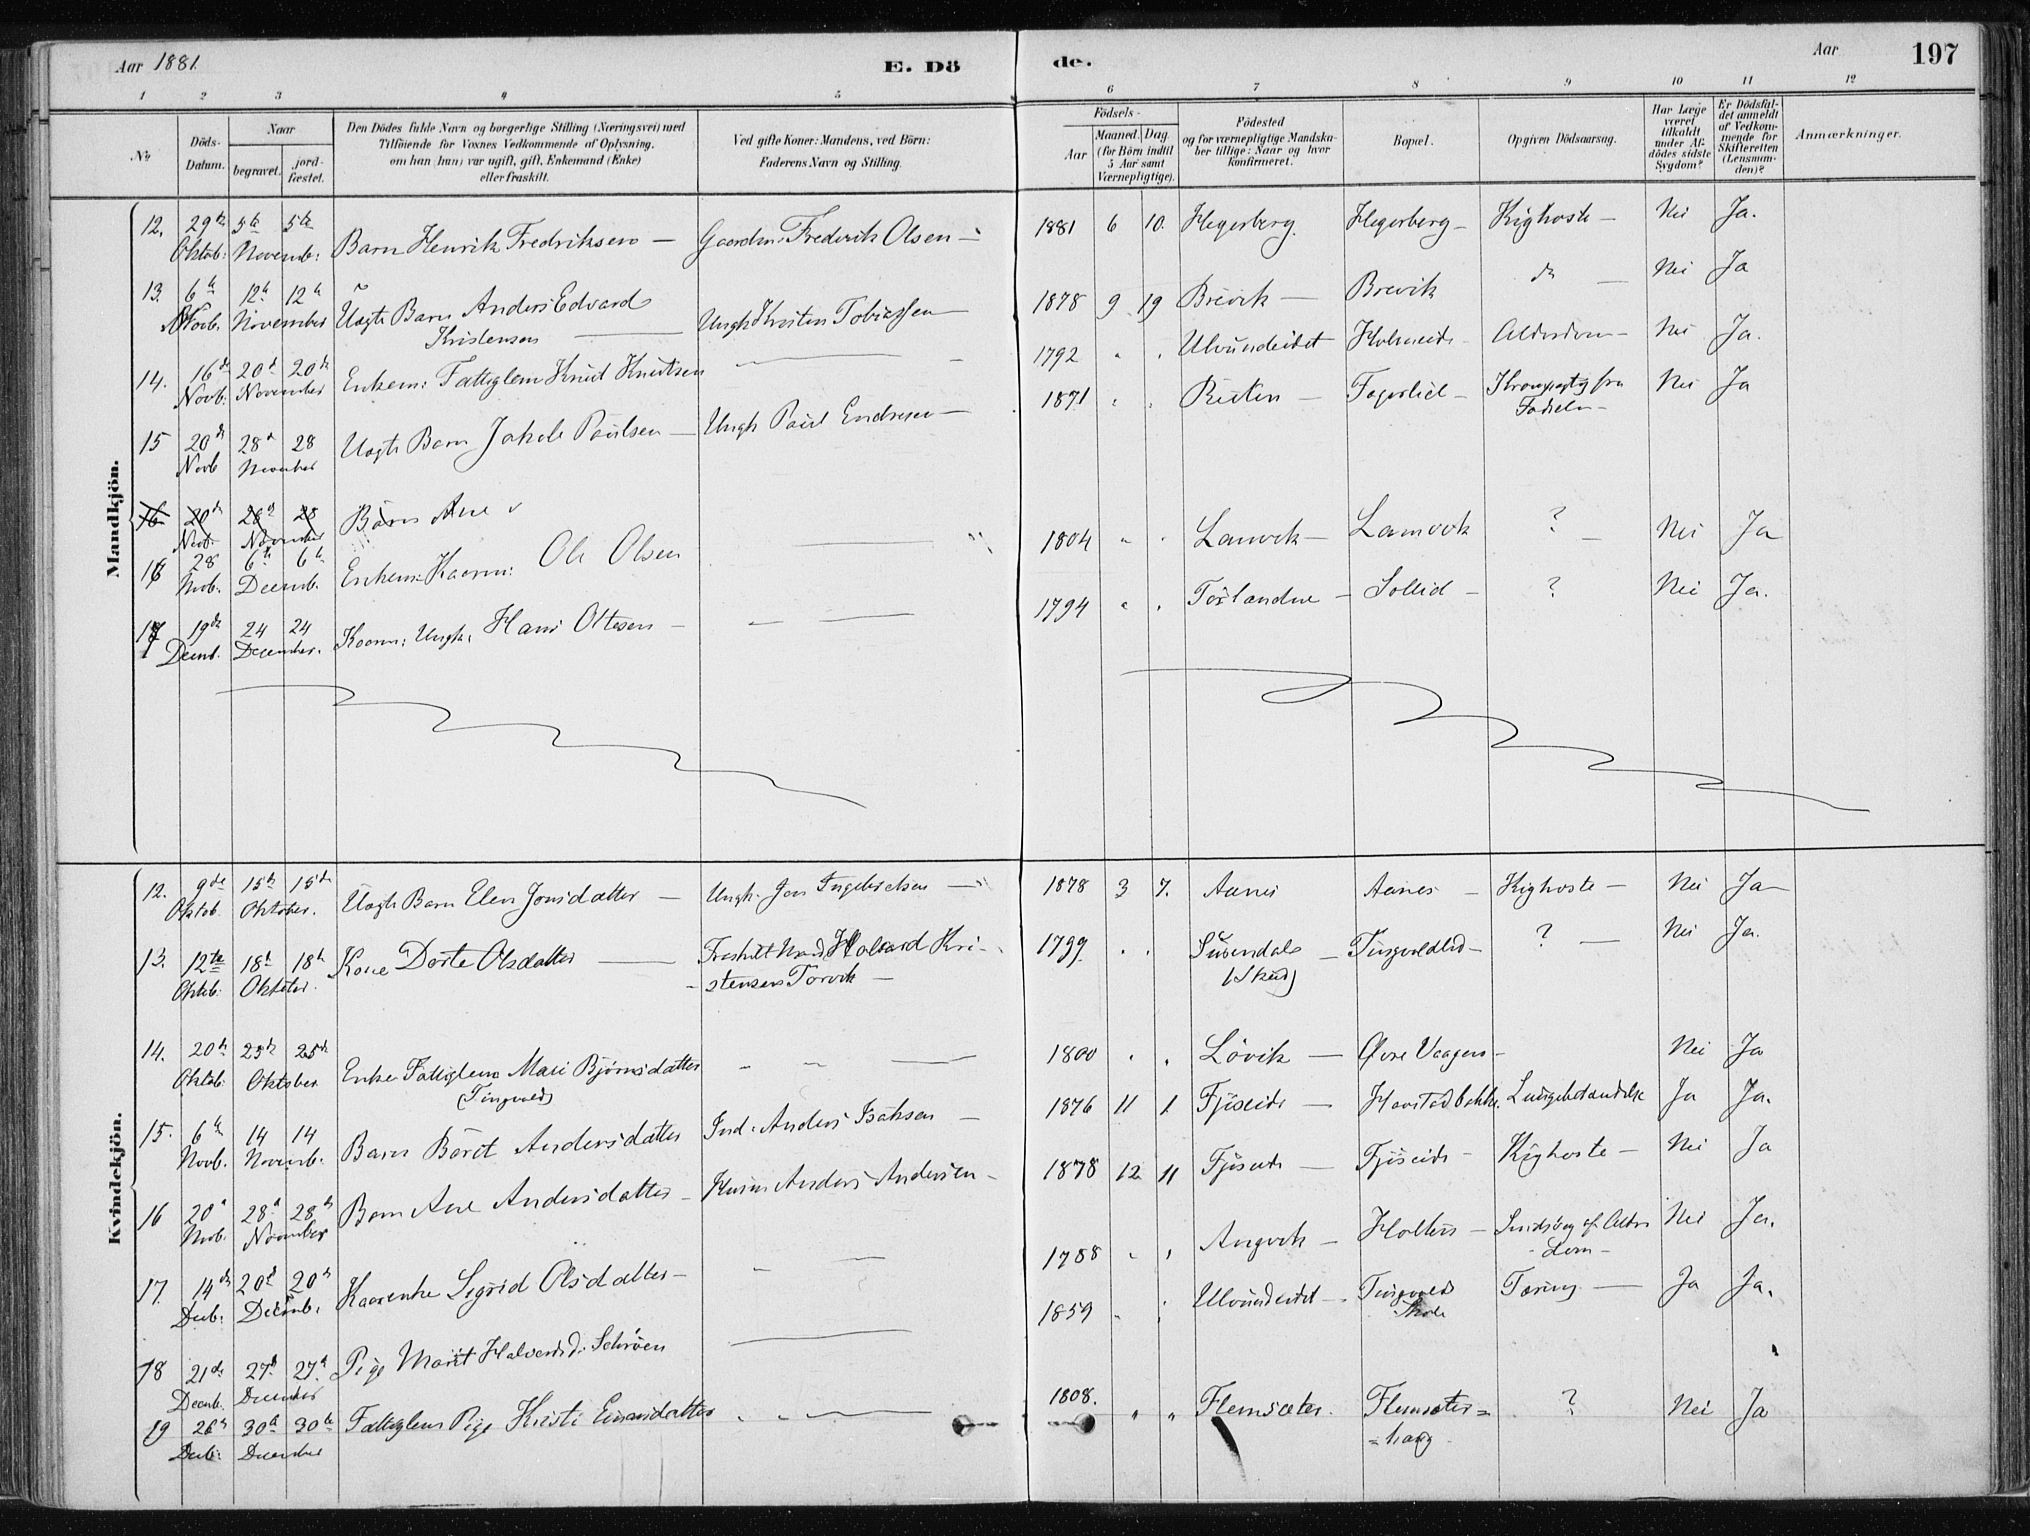 Aar 1881. E. Dö de. Aar 197
1 2 3 4 5 6 7 8 9 10 11 12
No
Döds-Datum.
Naar
begravet.
jord-fæstet.
Den Dödes fulde Navn og borgerlige Stilling (Næringsvei) med
Tilföiende for Voxnes Vedkommende af Oplysning,
om han (hun) var ugift, gift, Enkemand (Enke)
eller fraskilt.
Ved gifte Koner: Mandens, ved Börn:
Faderens Navn og Stilling.
Födsels-
Aar
Maaned. Dag.
(for Börn indtil
5 Aar samt
Værnepligtige).
Födested
og for værnepligtige Mandska-
ber tillige: Naar og hvor
konfirmeret.
Bopæl.
Opgiven Dödsaarsag.
Har Læge
været
tilkaldt
under Af-
dödes sidste
Sygdom?
Er Dödsfal-
det anmeldt
af Vedkom-
mende for
Skifteretten
(Lensman-
den)?
Anmærkninger.
Mandkjön.
12. 29de Oktob: 5te 5te Novemb: Barn Henrik Fredriksen — Gaardm: Frederik Olsen — 1881 6 10. Hegerberg. Hegerberg — Kighoste — Nei Ja.
13. 6te Novb. 12te 12te November Uægte Barn Anders Edvard
Kristensen — Ungk. Kristen Tobiassen — 1878 9 19 Brevik — Brevik do — Nei Ja
14. 16de Novb: 20de 20de November Enkem: Fattiglem Knud Knudsen — 1792 " " Ulvundeidet Holmeide Alderdom — Nei Ja.
15 20de Novb 28de 28 November Uægte Barn Jakob Paulsen — Ungk Paul Endresen — 1871 " " Ruten — Fagerlid — fra
Fødselen — Nei Ja
16 20de Nov. 28de 28 November Barn Ane
16 28 Novb. 6te 6te Decemb. Enkem: Kaarm: Ole Olsen — 1804 " " Lanvik — Lanvik ? — Nei Ja
17 19de Decemb. 24 24 December. Kaarm: Ungk: Hans Oltesen — 1794 " " — Sollid — ? Nei Ja.
Kvindekjön.
12. 9de Oktob. 15de 15de Oktober. Uægte Barn Elen Jonsdatter — Ungk. Jon Ingebrigtsen — 1878 3 7. Aanes Aanes — Kighoste — Nei Ja
13. 12te Oktob: 18de 18de Oktober. Kone Dorte Olsdatter — Fraskilt Mand Halvard Kri-
-stensen Torvik — 1799 " " Surendal
(Skei) — Tingvoldlid — ? — Nei Ja.
14. 20de Oktob: 25de 25de Oktober Enke Fattiglem Mari Bjørnsdatter
(Tingvold) — 1800 " " Lövik — Øvre Vaagen — Nei Ja
15. 6te Novb. 14 14 Novemb. Barn Böret Andersdatter Ind: Anders Isaksen — 1876 11 1 Fjöseide — Havstadbakke. Lungebetændelse Ja Ja.
16 20de Novb. 28de 28de November Barn Ane Andersdatter — Husm Anders Andersen — 1878 12 11 Fjöseide — Fjöseide — Kighoste — Nei Ja
17. 14de Decb: 20de 20de Decemb. Kaarenke Sigrid Olsdatter — 1788 " " Angvik — Holten — af Alder-
dom — Nei Ja.
18 21de Decemb. 27de 27de December Pige Marit Halvorsd: Schröen — 1859 " " Ulvundeidet — Tingvold
Skole Tæring — Ja Ja.
19 26de Decb: 30te 30te December Fattiglem Pige Kristi Einarsdatter " " — 1808. " " Flemsæter. Flemsæter=
=haug ? Nei Ja